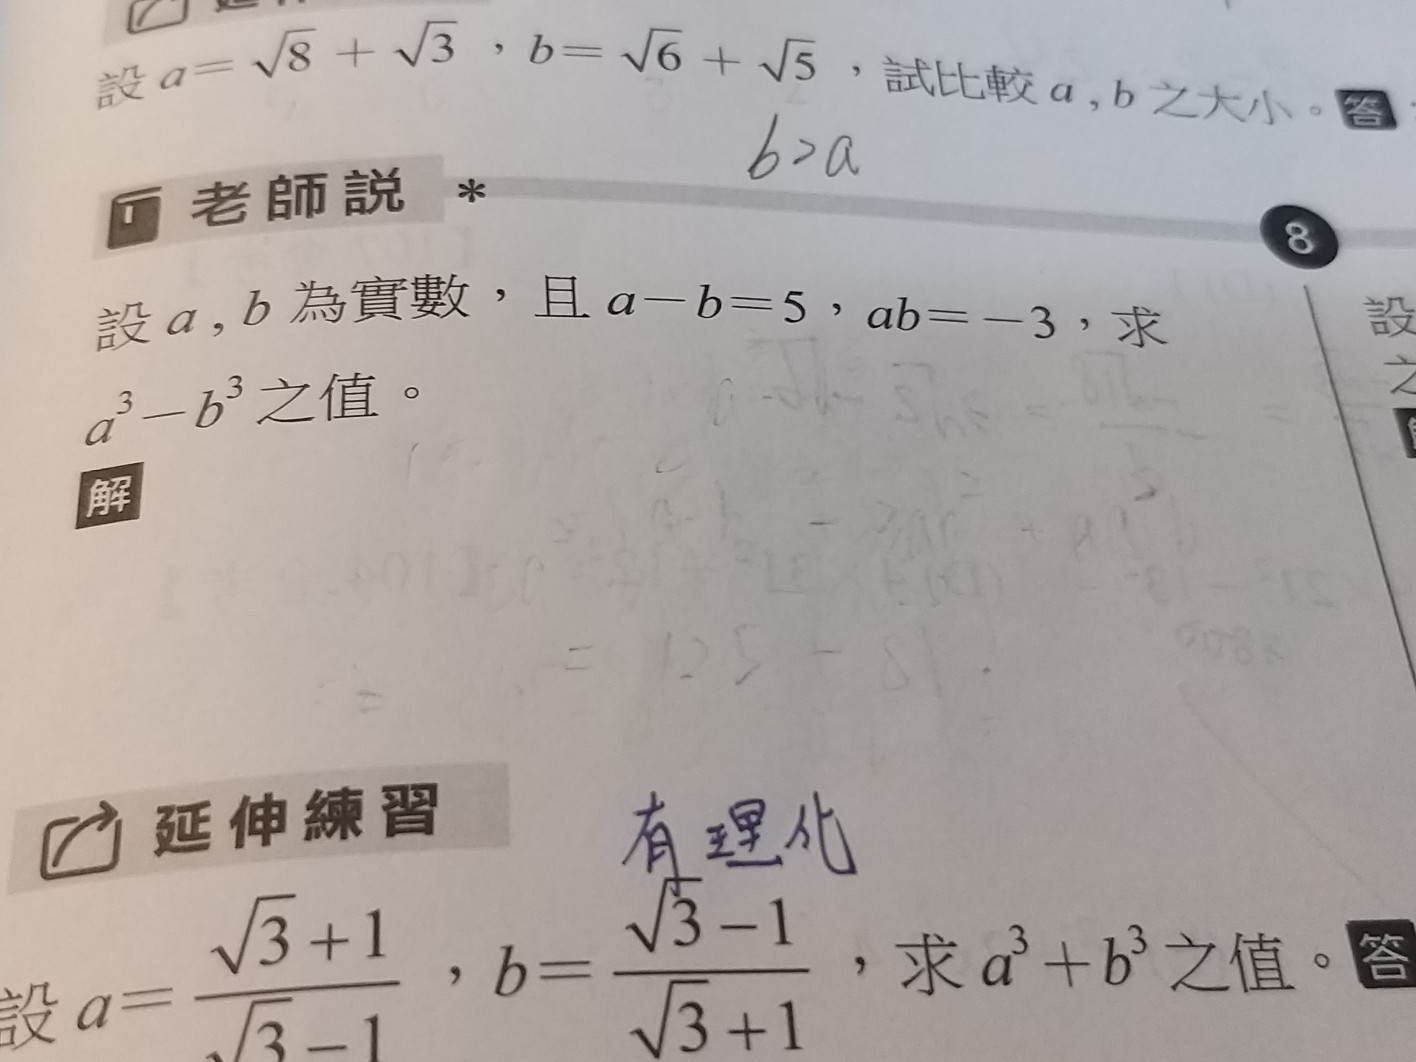 設 a=√8 + √3 , b=√6 + √5 ,試比較 a , b 之大小。答
b>a
老師説 *
8
設 a , b 為實數,且 a-b=5,ab=-3,求
a³-b³ 之值。
解
設
之
延伸練習
有理化
設 a=(√3+1)/(√3-1) , b=(√3-1)/(√3+1) ,求 a³+b³ 之值。答